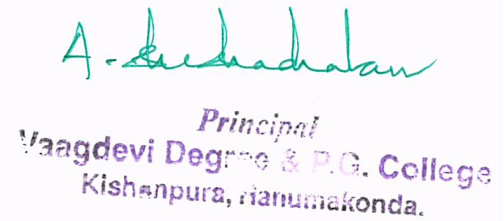 Principal
Vaagdevi Degree & P.G. College
Kishanpura, Hanumakonda.